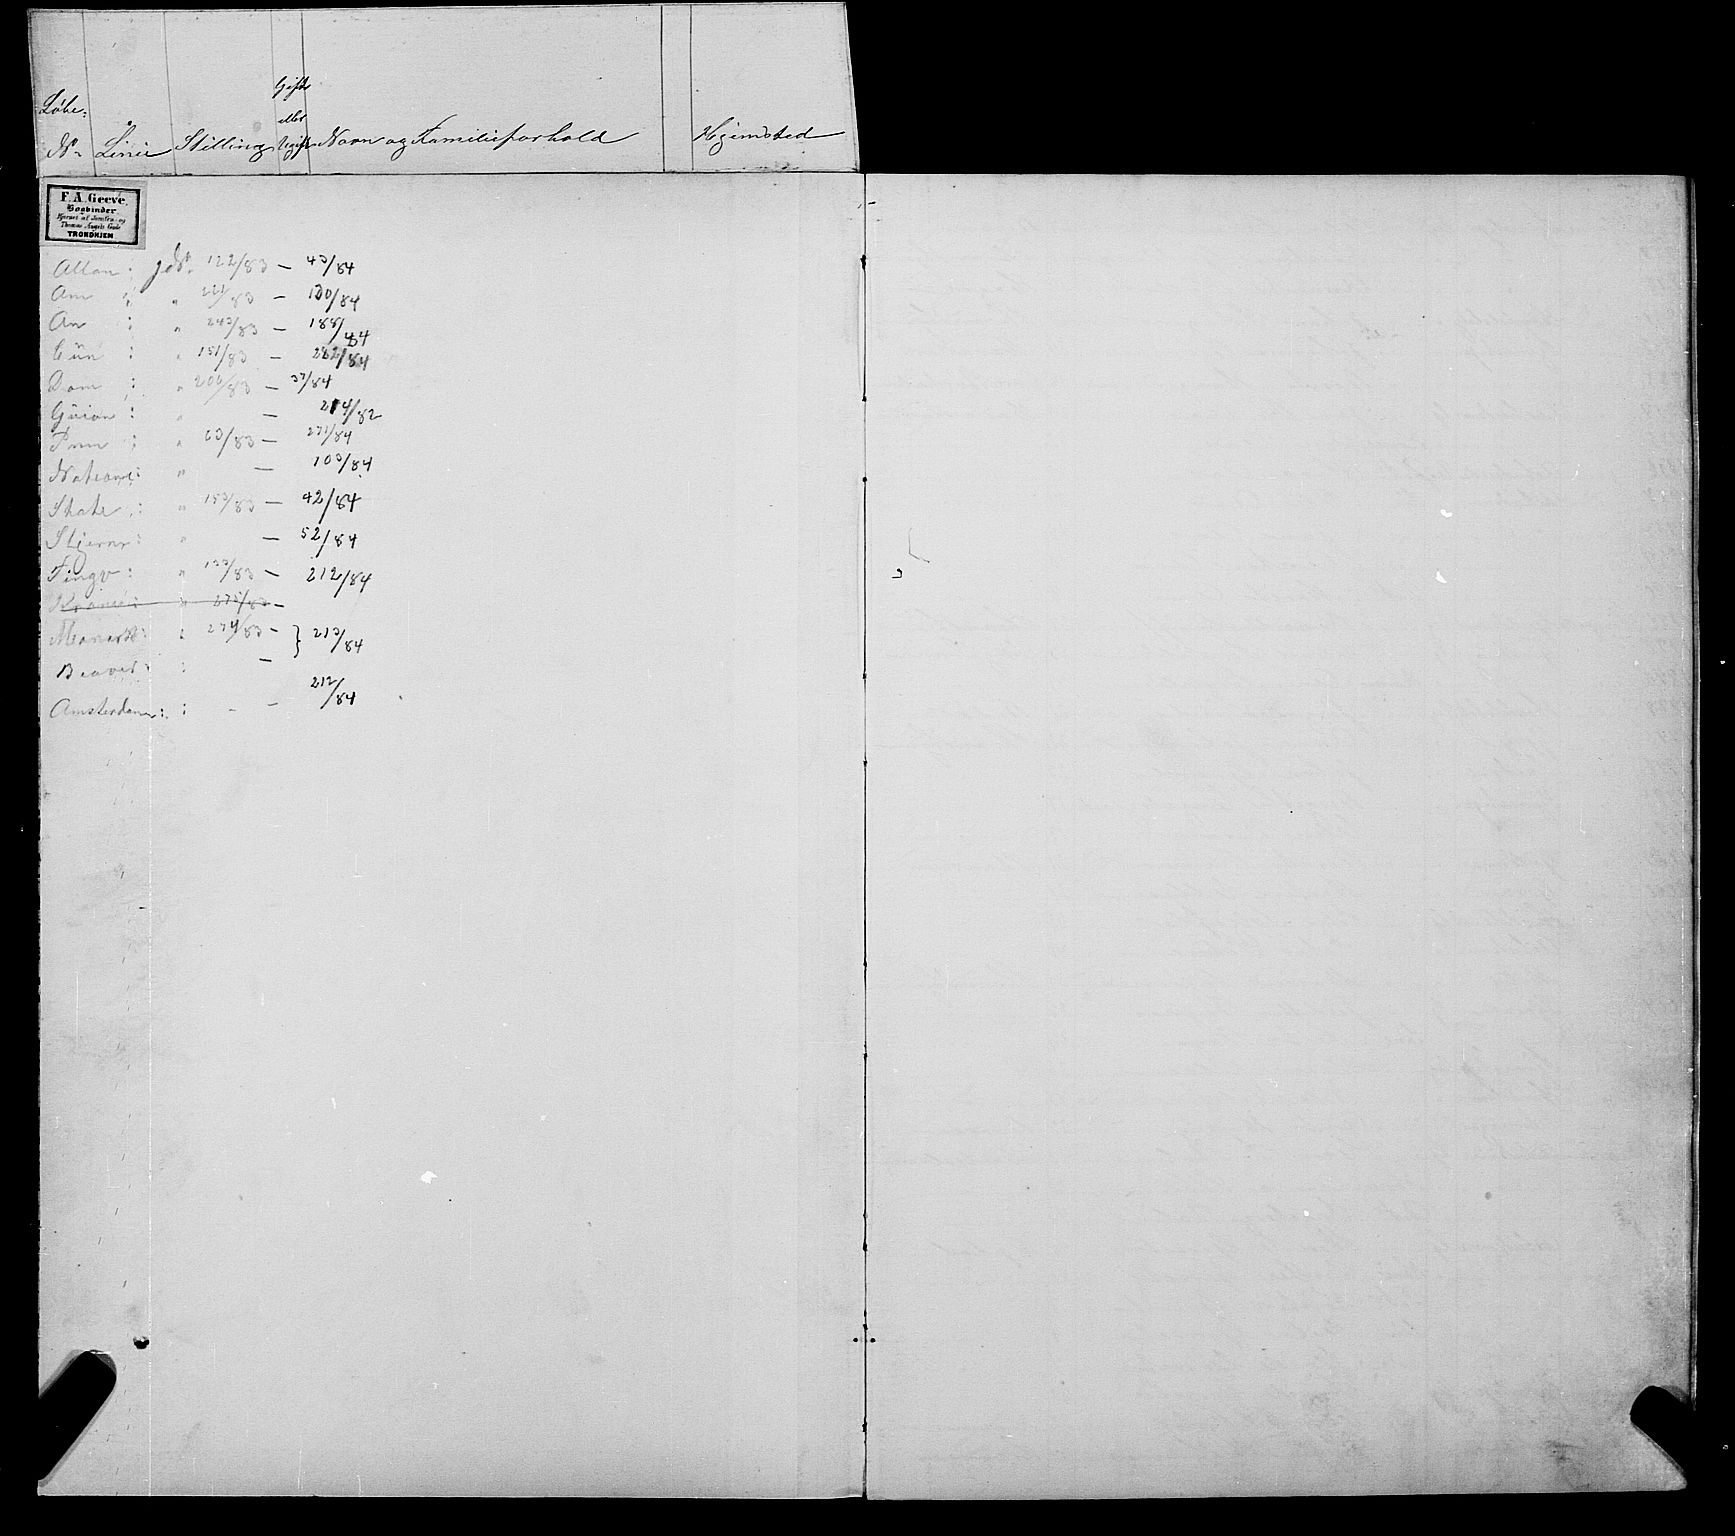 Løbe-
No Linie Stilling Gift eller Ugift Navn og Familieforhold Hjemsted
F. A. Geeve.
Bogbinder
Hjørnet af Jomfru- og
Thomas Angels Gade
TRONDHJEM
Allan: JNo. 122/83 — 43/84
Am : " 221/83 — 130/84
An : " 243/83 — 188/84
Cün : " 151/83 — 282/84
Dom : " 206/83 — 37/84
Guion : " — 214/82
Inm : " 63/83 — 271/84
National: " — 103/84
State : " 153/83 — 42/84
Stjerne: " — 52/84
Tingv : " 133/83 — 212/84
" 275/83 —
Monark: " 274/83 — } 213/84
Beaver : —
Amsterdam: : " — 212/84